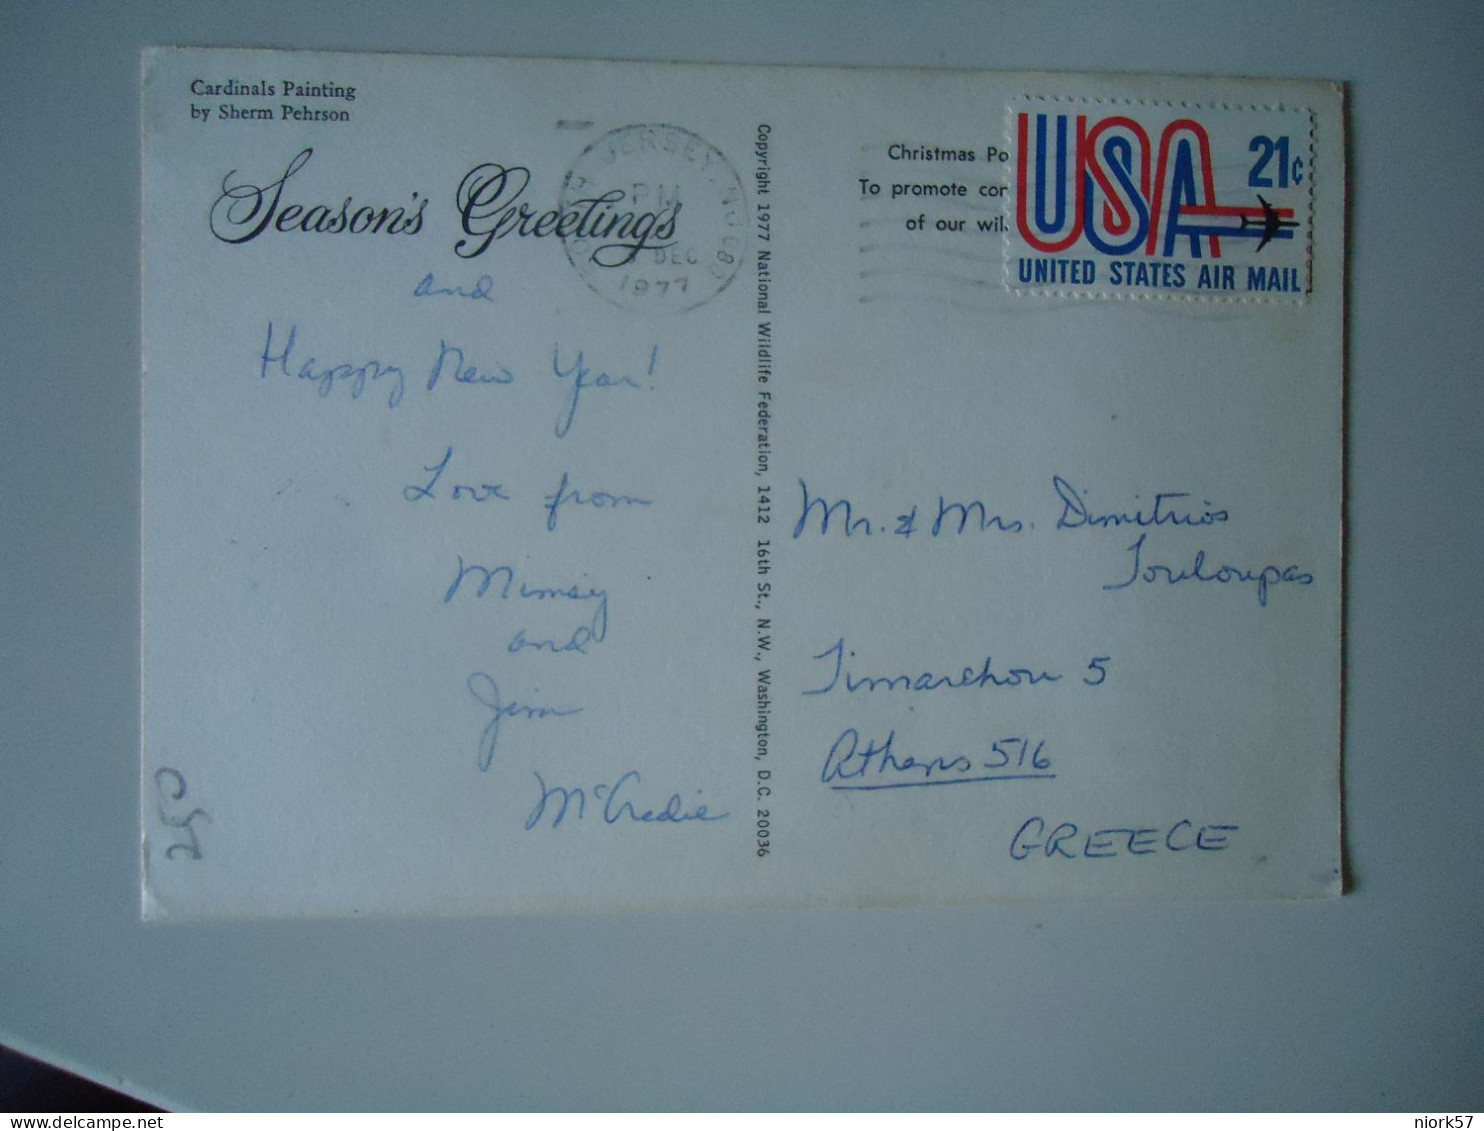 Cardinals Painting
by Sherm Pehrson
Season's Greetings
and
Happy New Year!
Love from
Mimsy
and
Jim
McCradie
JERSEY, NJ 08
PM
DEC
1977
Copyright 1977 National Wildlife Federation, 1412 16th St., N.W., Washington, D.C. 20036
Christmas Po
To promote con
of our wil
USA
21¢
UNITED STATES AIR MAIL
Mr. & Mrs. Dimitrios
Touloupas
Timarchou 5
Athens 516
GREECE
niork57